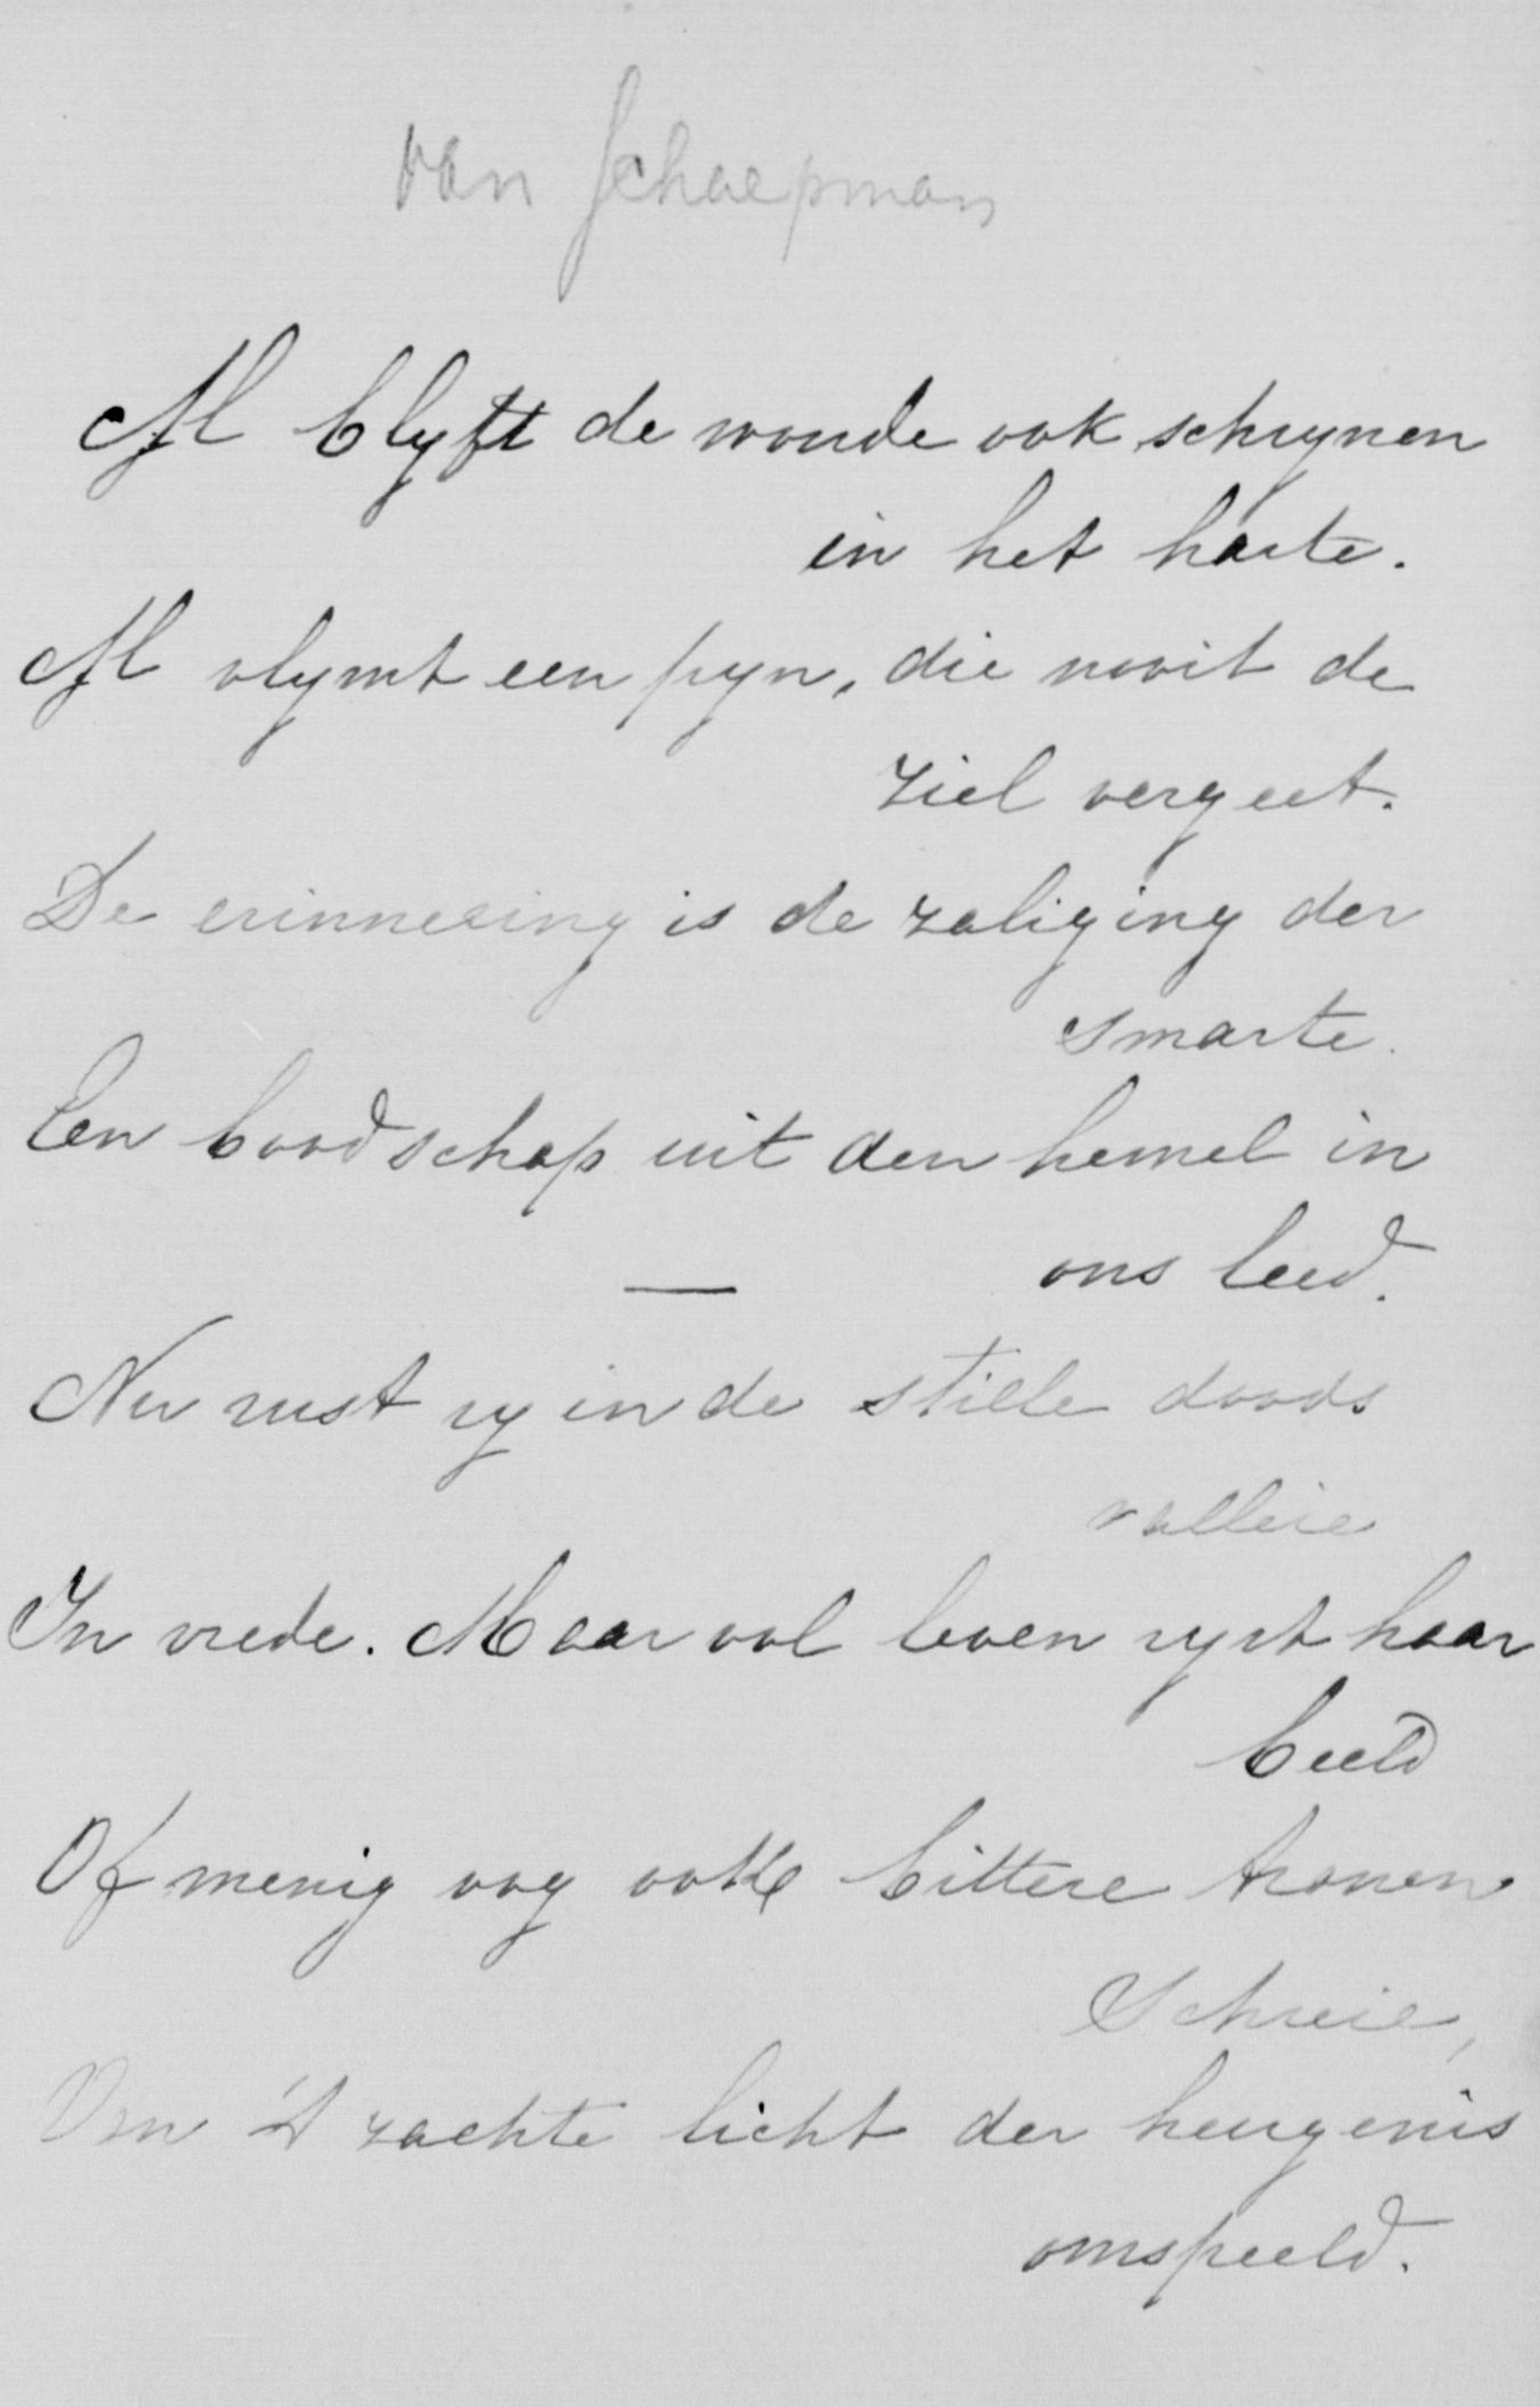 van Schaepman
Al blyft de wonde ook schrynen
in het harte.
Al vlymt een pyn, die nooit de
ziel vergeet.
De erinnering is de zaliging der
smarte.
Een boodschap uit den hemel in
ons leed.
—
Nu rust zy in de stille doods
valleie
In vrede. Maar vol leven ryst haar
beeld
Of menig oog ook bittere tranen
Schreie,
Van 't zachte licht der heugenis
omspeeld.